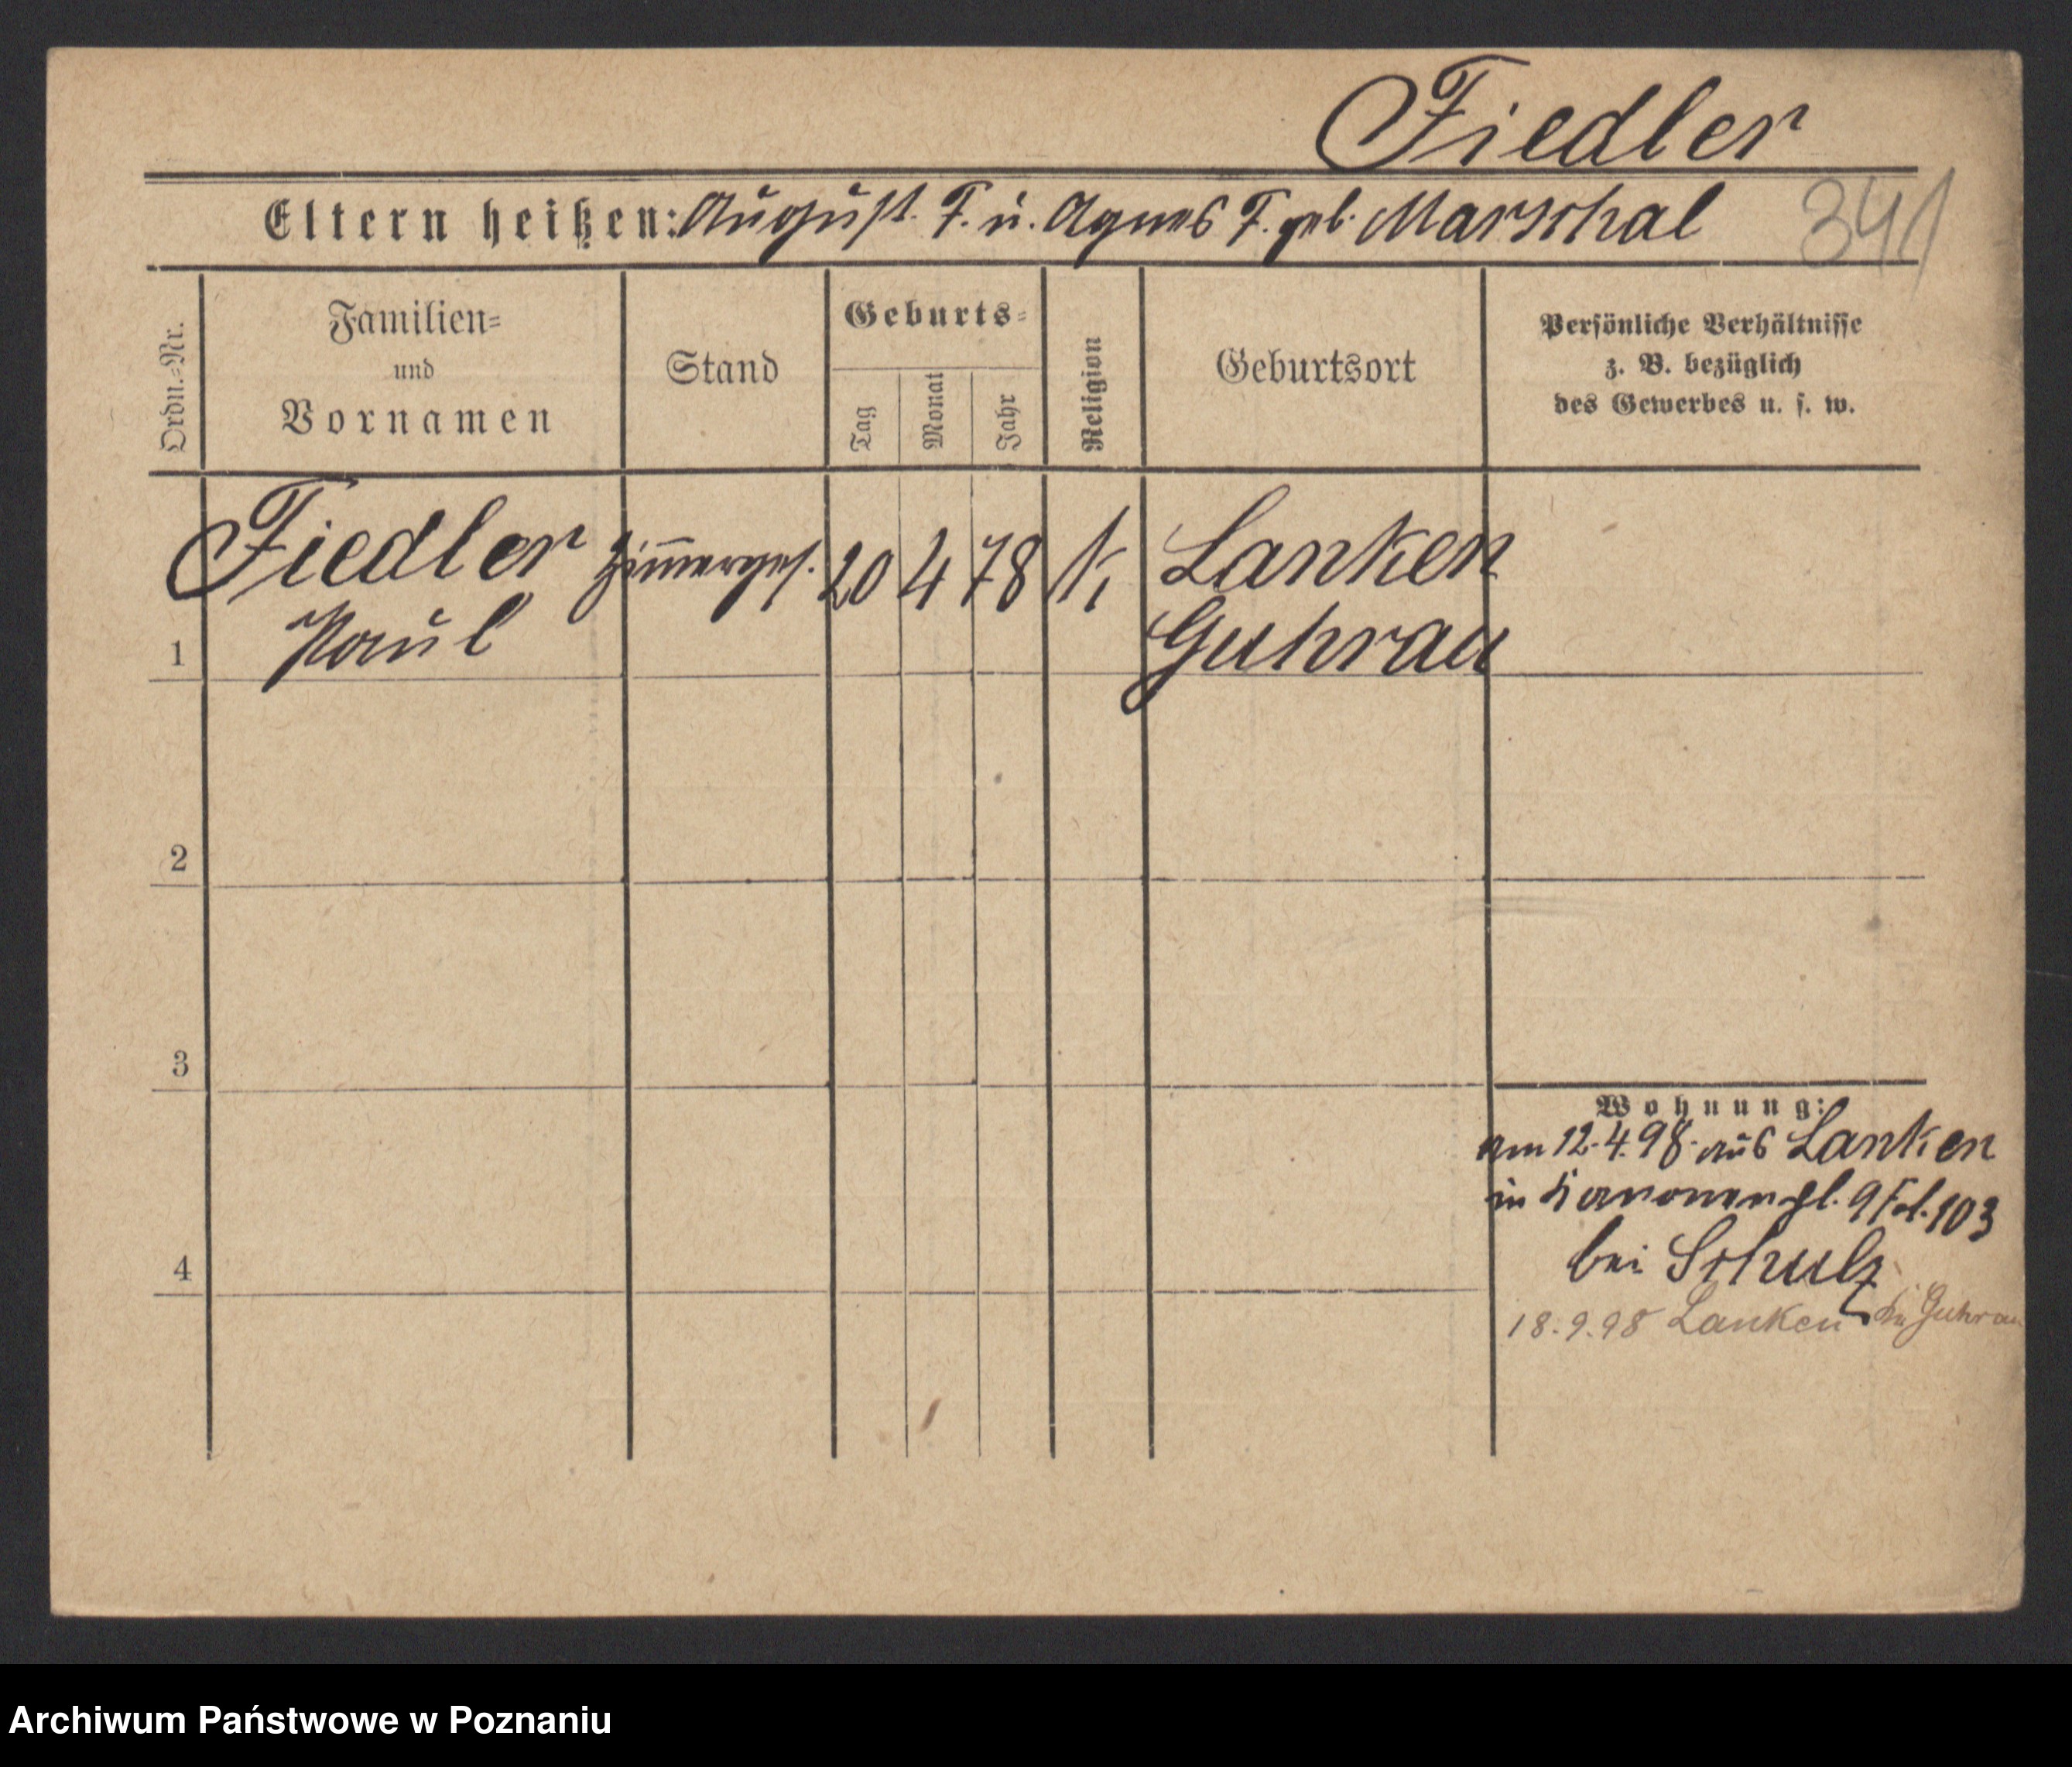 Fiedler
Eltern heißen: August F. u. Agnes F. geb. Marschal
341
Ordn.=Nr.
Familien=
und
Vornamen
Stand
Geburts=
Tag
Monat
Jahr
Religion
Geburtsort
Persönliche Verhältnisse
z. B. bezüglich
des Gewerbes u. s. w.
Fiedler Zimmerges. 20 4 78 K Lanken
1 Paul Guhrau
2
3
Wohnung:
am 12.4.98. aus Lanken
in Kanonenpl. 9 Fol. 103
bei Schulz
4
18.9.98 Lanken Kr. Guhrau
Archiwum Państwowe w Poznaniu